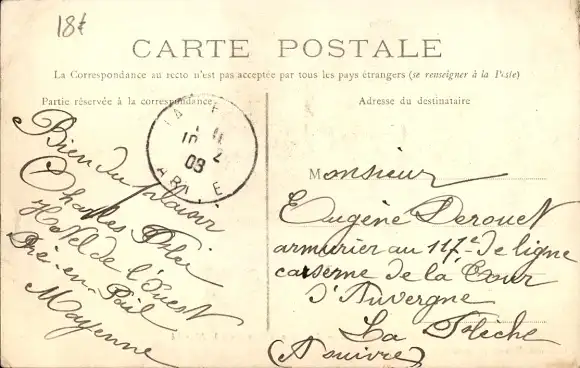 18€
CARTE POSTALE
La Correspondance au recto n'est pas acceptée par tous les pays étrangers (se renseigner à la Poste)
Partie réservée à la correspondance
Bien du plaisir
Charles
Hotel de l'Ouest
Pré-en-Pail
Mayenne
LA F
10
2
08
E
Adresse du destinataire
Monsieur
Eugène Derouet
armurier au 117e de ligne
caserne de la Tour
d'Auvergne
La Flèche
(A suivre)